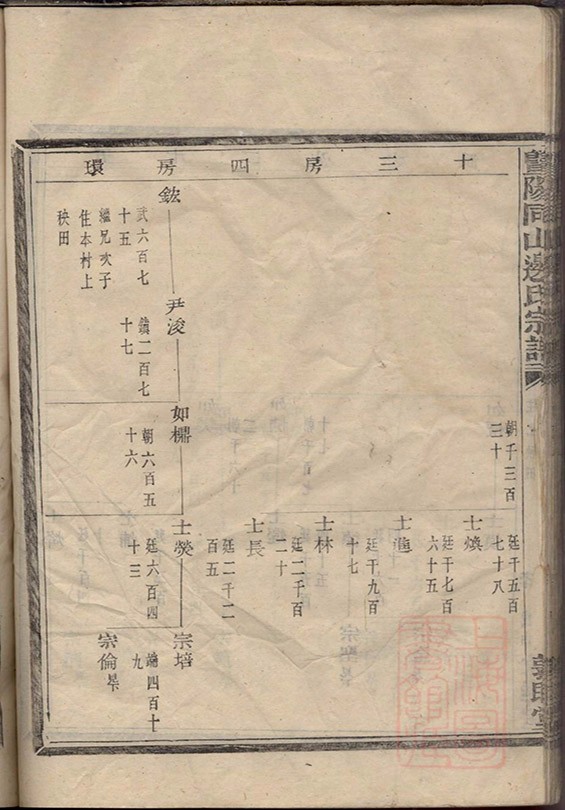 暨陽同山邊氏宗譜
十三房四房環
朝千三百
三十
廷千五百
七十八
士煥
廷千七百
六十五
士進
廷千九百
十七
士林
廷二千百
二十
士長
廷二千二
百五
鈜
武六百七
十五
繼兄次子
住本村上
秧田
尹浚
鎮二百七
十七
如櫹
朝六百五
十六
士熒
廷六百四
十三
宗培
端四百十
九
宗倫